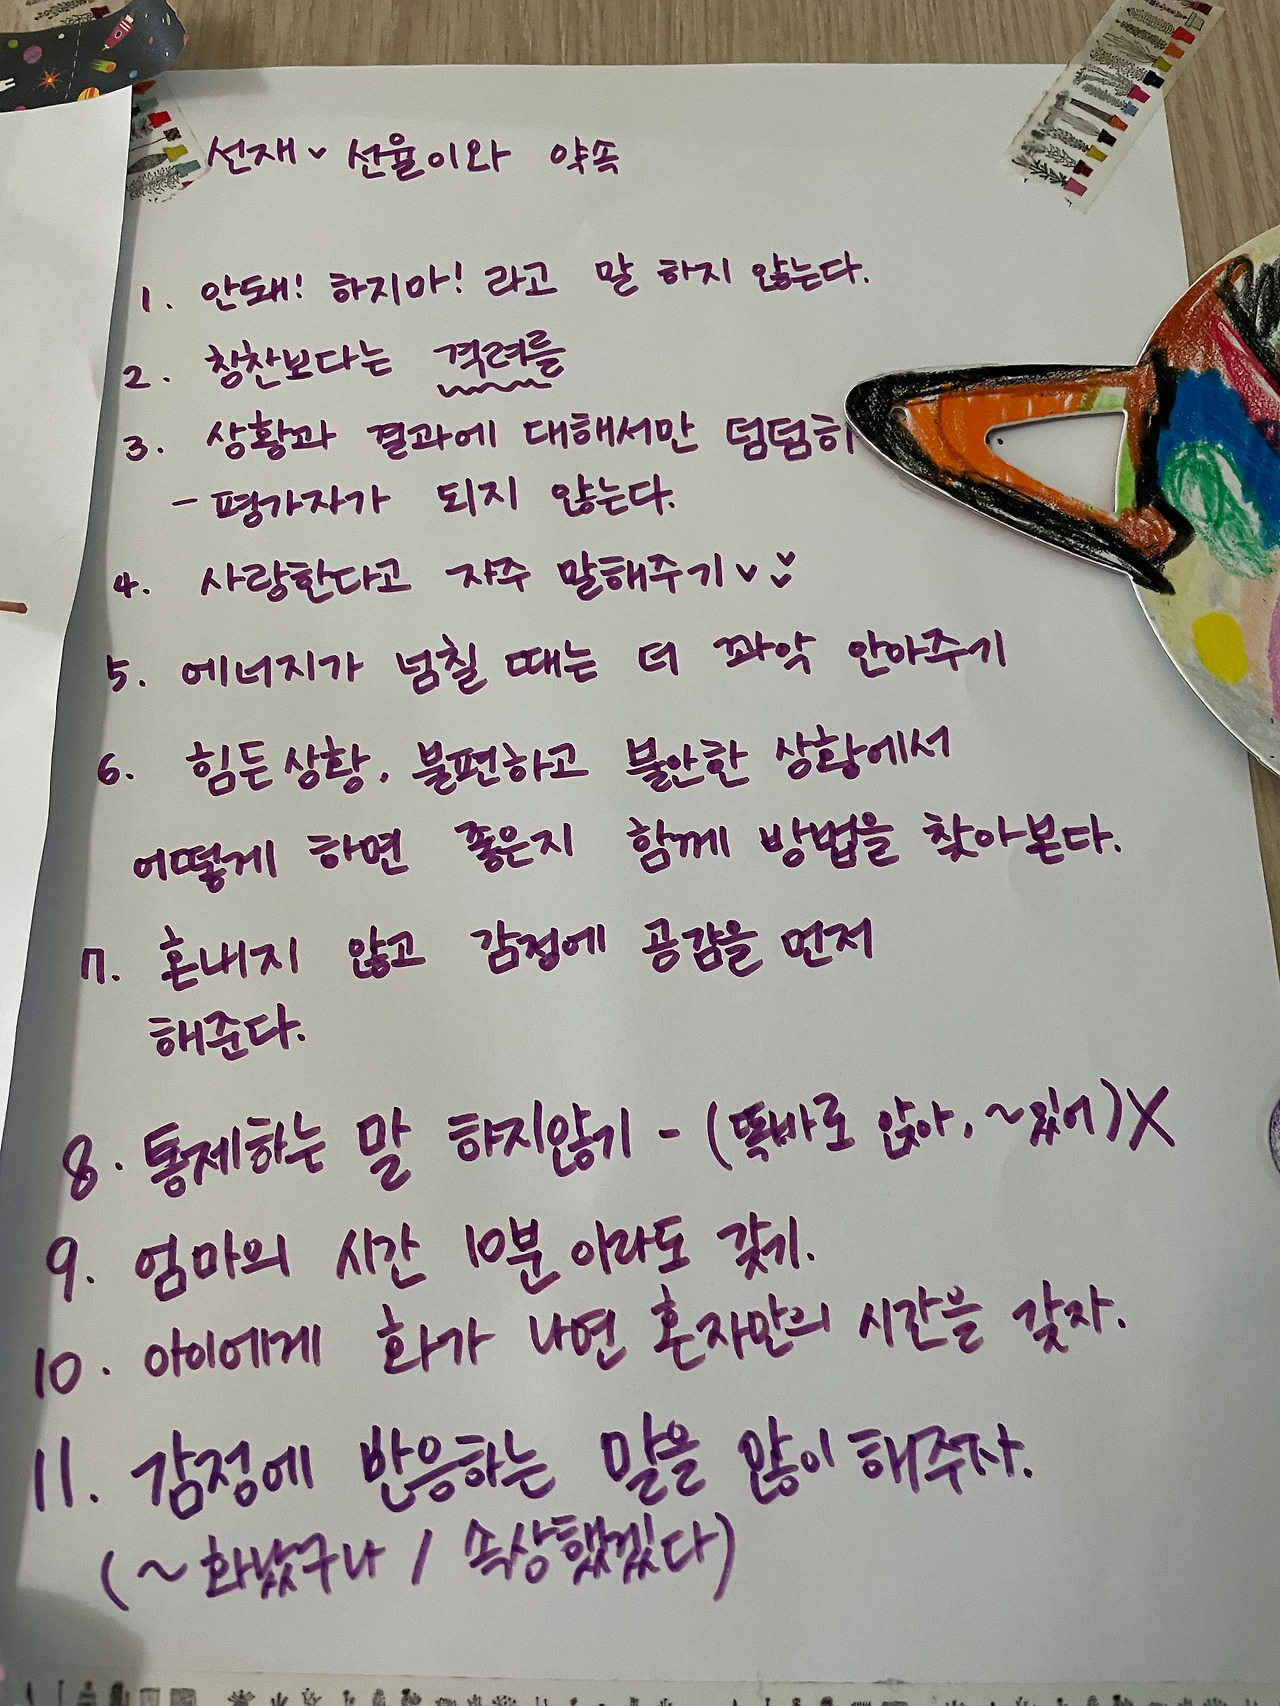 선재♥ 선율이와 약속
1. 안돼! 하지마! 라고 말 하지 않는다.
2. 칭찬보다는 격려를
3. 상황과 결과에 대해서만 덤덤히
- 평가자가 되지 않는다.
4. 사랑한다고 자주 말해주기♥
5. 에너지가 넘칠 때는 더 꽈악 안아주기
6. 힘든상황, 불편하고 불안한 상황에서
어떻게 하면 좋은지 함께 방법을 찾아본다.
7. 혼내지 않고 감정에 공감을 먼저
해준다.
8. 통제하는 말 하지않기 - (똑바로 앉아, ~있어)X
9. 엄마의 시간 10분이라도 갖기.
10. 아이에게 화가 나면 혼자만의 시간을 갖자.
11. 감정에 반응하는 말을 많이 해주자.
(~화났구나 / 속상했겠다)